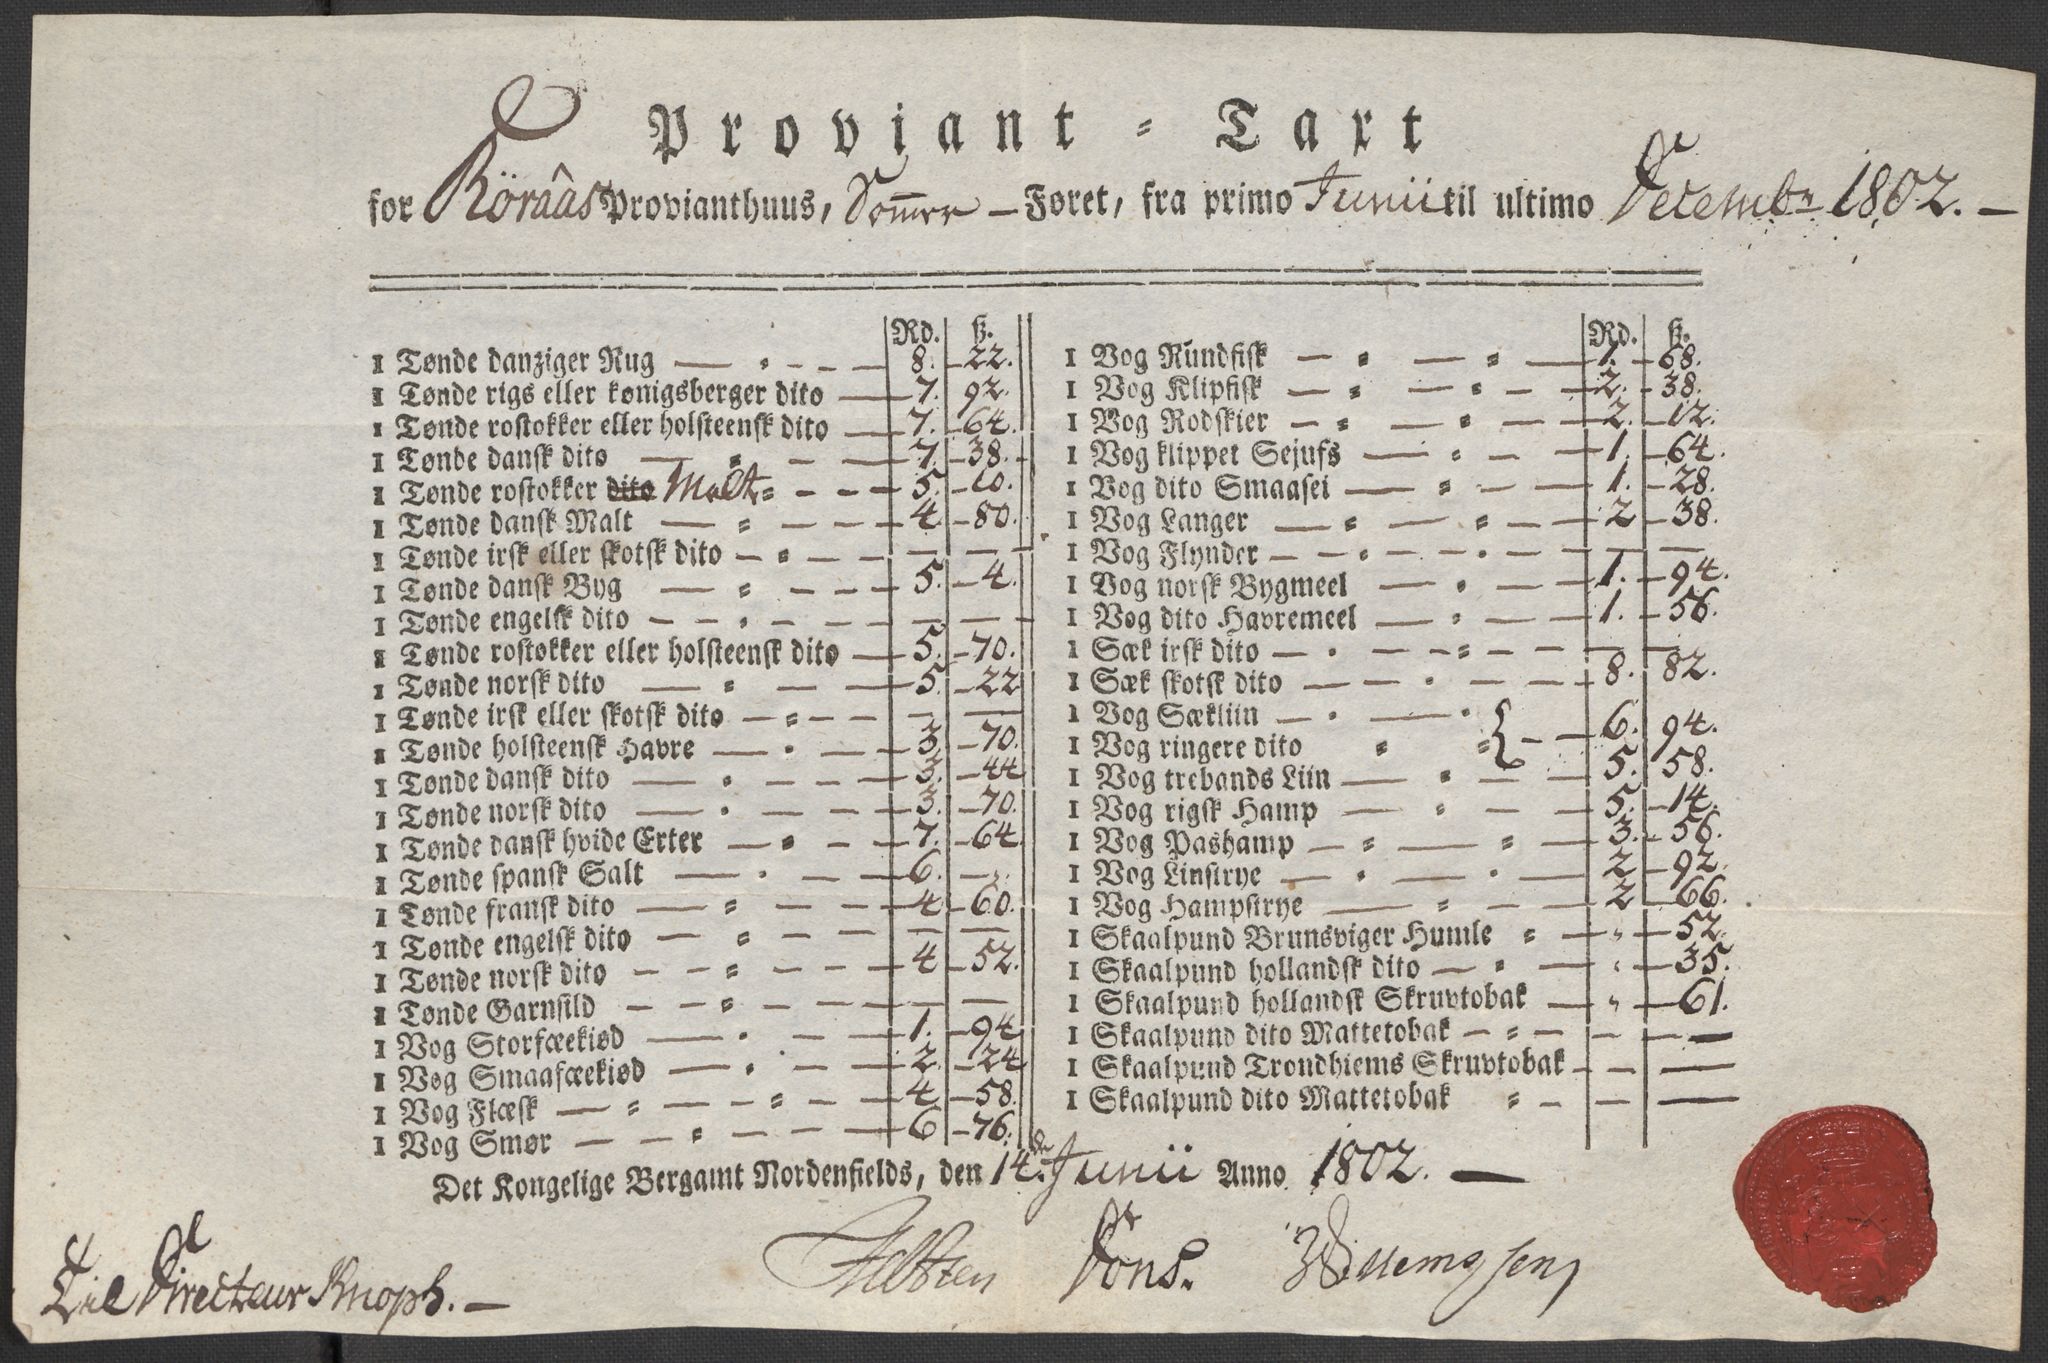 Proviant-Taxt
for Röraas Provianthuus, Sommer-Føret, fra primo Junii til ultimo Decembr 1802.
Rd. ß.
1 Tønde danziger Rug 8. 22.
1 Tønde rigs eller kønigsberger dito 7. 92.
1 Tønde rostokker eller holsteensk dito 7. 64.
1 Tønde dansk dito 7. 38.
1 Tønde rostokker dito Malt 5. 10.
1 Tønde dansk Malt 4. 80.
1 Tønde irsk eller skotsk dito — —
1 Tønde dansk Byg 5. 4.
1 Tønde engelsk dito — —
1 Tønde rostokker eller holsteensk dito 5. 70.
1 Tønde norsk dito 5. 22
1 Tønde irsk eller skotsk dito — —
1 Tønde holsteensk Havre 3. 70.
1 Tønde dansk dito 3. 44
1 Tønde norsk dito 3. 70.
1 Tønde dansk hvide Erter 7. 64
1 Tønde spansk Salt 6. —
1 Tønde fransk dito 4 60.
1 Tønde engelsk dito — —
1 Tønde norsk dito 4 52.
1 Tønde Garnsild — —
1 Vog Storfæekiød 1. 94
1 Vog Smaafæekiød 2. 24
1 Vog Flæsk 4 58.
1 Vog Smør 6 76.
Rd. ß.
1 Vog Rundfisk 1. 68.
1 Vog Klipfisk 2. 38.
1 Vog Rodskier 2. 12.
1 Vog klippet Sejufs 1. 64.
1 Vog dito Smaasei 1. 28.
1 Vog Langer 2 38.
1 Vog Flynder — —
1 Vog norsk Bygmeel 1. 94.
1 Vog dito Havremeel 1. 56.
1 Sæk irsk dito — —
1 Sæk skotsk dito 8. 82.
1 Vog Sækliin
1 Vog ringere dito { 6. 94.
1 Vog trebands Liin 5. 58.
1 Vog rigsk Hamp 5. 14.
1 Vog Pashamp 3. 56.
1 Vog Linstrye 2 92.
1 Vog Hampstrye 2 66.
1 Skaalpund Brunsviger Humle " 52.
1 Skaalpund hollandsk dito " 35.
1 Skaalpund hollandsk Skruvtobak " 61.
1 Skaalpund dito Mattetobak — —
1 Skaalpund Trondhiems Skruvtobak — —
1 Skaalpund dito Mattetobak — —
Det Kongelige Bergamt Nordenfields, den 14de Junii Anno 1802.
Dons.
Til Directeur Knoph.